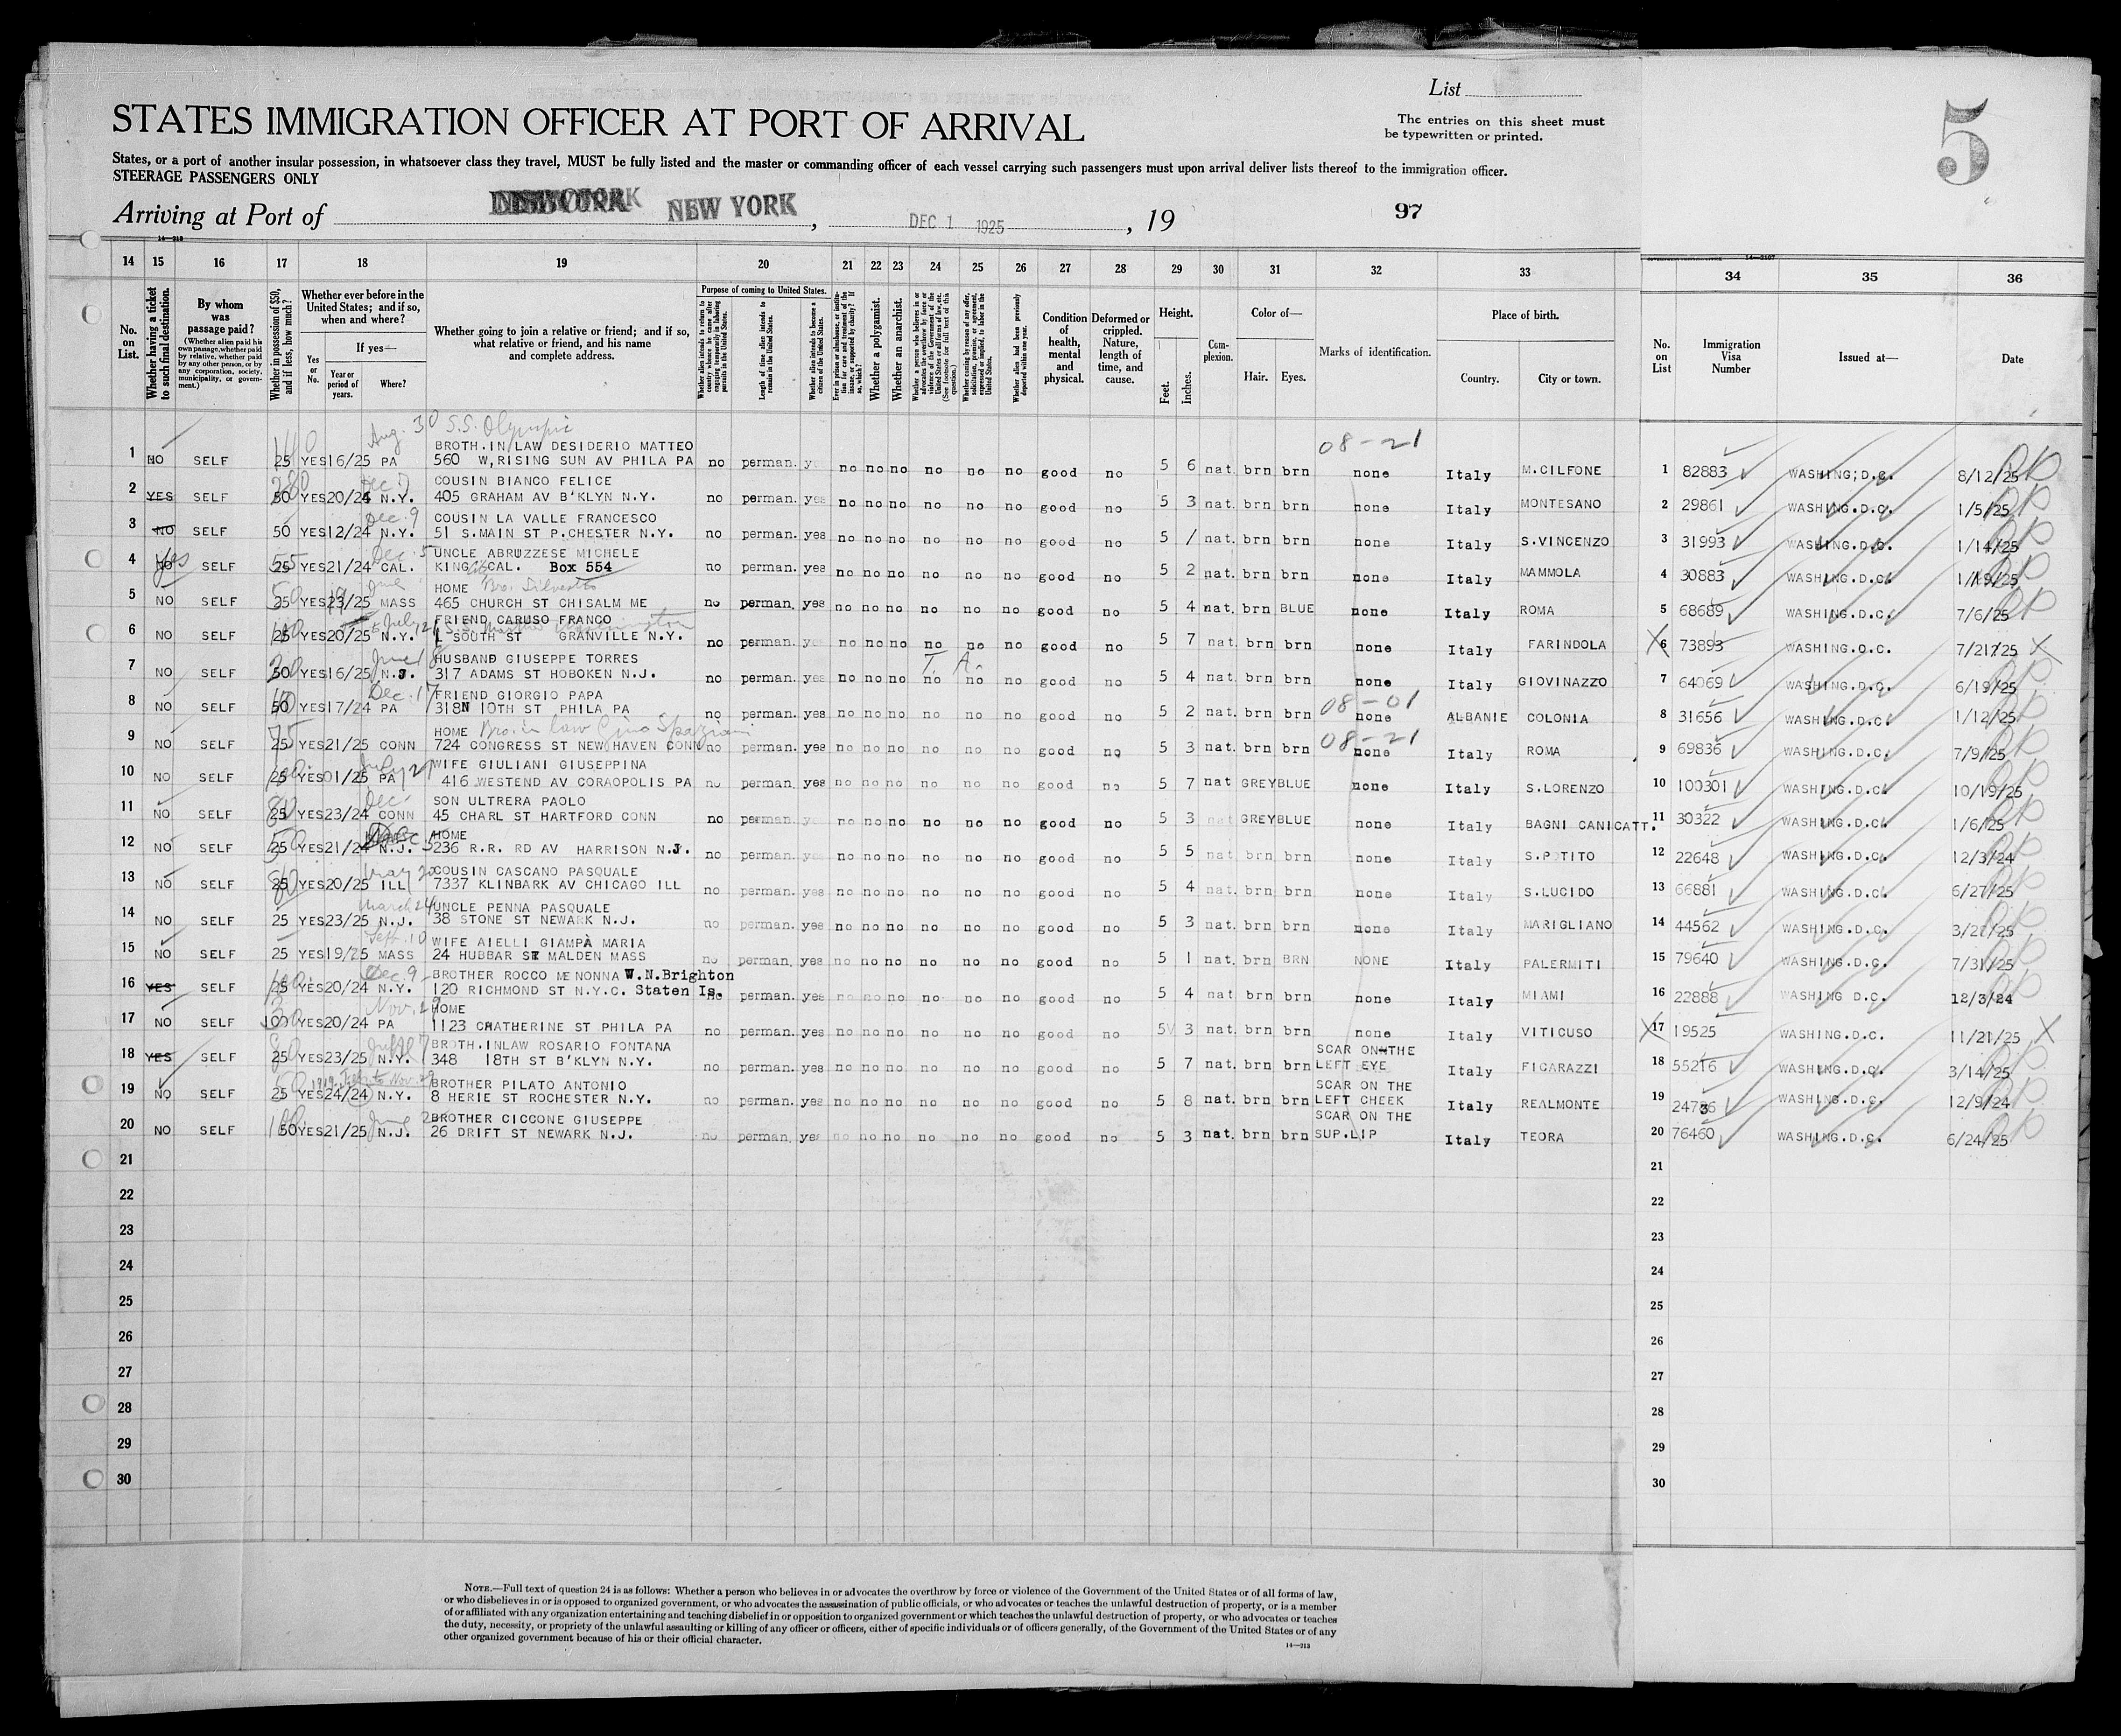 List
5
STATES IMMIGRATION OFFICER AT PORT OF ARRIVAL
The entries on this sheet must
be typewritten or printed.
States, or a port of another insular possession, in whatsoever class they travel, MUST be fully listed and the master or commanding officer of each vessel carrying such passengers must upon arrival deliver lists thereof to the immigration officer.
STEERAGE PASSENGERS ONLY
Arriving at Port of NEW YORK, DEC 1 1925, 19
97
14 15 16 17 18 19 20 21 22 23 24 25 26 27 28 29 30 31 32 33 34 35 36
No. on List.
Whether having a ticket to such final destination.
By whom was passage paid?
(Whether alien paid his own passage, whether paid by relative, whether paid by any other person, or by any corporation, society, municipality, or government.)
Whether in possession of $50, and if less, how much?
Whether ever before in the United States; and if so, when and where?
Yes or No.
If yes—
Year or period of years.
Where?
Whether going to join a relative or friend; and if so, what relative or friend, and his name and complete address.
Purpose of coming to United States.
Length of time alien intends to remain in the United States.
Whether alien intends to become a citizen of the United States.
Whether a polygamist.
Whether an anarchist.
Condition of health, mental and physical.
Deformed or crippled. Nature, length of time, and cause.
Height.
Feet.
Inches.
Complexion.
Color of—
Hair.
Eyes.
Marks of identification.
Place of birth.
Country.
City or town.
No. on List
Immigration Visa Number
Issued at—
Date
Aug. 30 S.S. Olympic
BROTH.IN LAW DESIDERIO MATTEO 08-21
1 NO SELF 25 YES 16/25 PA 560 W,RISING SUN AV PHILA PA no perman. no no no no no no good no 5 6 nat. brn brn none Italy M.CILFONE 1 82883 WASHING;D.C. 8/12/25
COUSIN BIANCO FELICE
2 YES SELF 50 YES 20/24 N.Y. 405 GRAHAM AV B'KLYN N.Y. no perman. yes no no no no no no good no 5 3 nat. brn brn none Italy MONTESANO 2 29861 WASHING.D.C. 1/5/25
Dec. 9 COUSIN LA VALLE FRANCESCO
3 NO SELF 50 YES 12/24 N.Y. 51 S.MAIN ST P.CHESTER N.Y. no perman. yes no no no no no no good no 5 / nat. brn brn none Italy S.VINCENZO 3 31993 WASHING.D.C. 1/14/25
yes Dec. 5 UNCLE ABRUZZESE MICHELE
4 NO SELF 25 YES 21/24 CAL. KING CAL. Box 554 no perman. yes no no no no no no good no 5 2 nat. brn brn none Italy MAMMOLA 4 30883 WASHING.D.C. 1/19/25
HOME Bro. Silvestro
5 NO SELF 25 YES 23/25 MASS 465 CHURCH ST CHISALM ME no perman. yes no no no no no no good no 5 4 nat. brn BLUE none Italy ROMA 5 68689 WASHING.D.C. 7/6/25
FRIEND CARUSO FRANCO
6 NO SELF 25 YES 20/25 N.Y. L SOUTH ST GRANVILLE N.Y. no perman. yes no no no no no no good no 5 7 nat. brn brn none Italy FARINDOLA X 6 73893 WASHING.D.C. 7/21/25 X
June 18 HUSBAND GIUSEPPE TORRES T. A.
7 NO SELF 50 YES 16/25 N.J. 317 ADAMS ST HOBOKEN N.J. no perman. yes no no no no no no good no 5 4 nat. brn brn none Italy GIOVINAZZO 7 64069 WASHING.D.C. 6/19/25
Dec. 17 FRIEND GIORGIO PAPA 08-01
8 NO SELF 50 YES 17/24 PA 318N 10TH ST PHILA PA no perman. yes no no no no no no good no 5 2 nat. brn brn none ALBANIE COLONIA 8 31656 WASHING.D.C. 1/12/25
75 HOME Bro. in law Gino Spaziani 08-21
9 NO SELF 25 YES 21/25 CONN 724 CONGRESS ST NEW HAVEN CONN no perman. yes no no no no no no good no 5 3 nat. brn brn none Italy ROMA 9 69836 WASHING.D.C. 7/9/25
July 27 WIFE GIULIANI GIUSEPPINA
10 NO SELF 25 YES 01/25 PA 416 WESTEND AV CORAOPOLIS PA no perman. yes no no no no no no good no 5 7 nat GREY BLUE none Italy S.LORENZO 10 100301 WASHING.D.C. 10/19/25
Dec. SON ULTRERA PAOLO
11 NO SELF 25 YES 23/24 CONN 45 CHARL ST HARTFORD CONN no perman. no no no no no no good no 5 3 nat GREY BLUE none Italy BAGNI CANICATT. 11 30322 WASHING.D.C. 1/6/25
HOME
12 NO SELF 25 YES 21/24 N.J. 236 R.R. RD AV HARRISON N.J. no perman. no no no no no no good no 5 5 nat brn brn none Italy S.POTITO 12 22648 WASHING.D.C. 12/3/24
May 20 COUSIN CASCANO PASQUALE
13 NO SELF 25 YES 20/25 ILL 7337 KLINBARK AV CHICAGO ILL no perman. yes no no no no no no good no 5 4 nat. brn brn none Italy S.LUCIDO 13 66881 WASHING.D.C. 6/27/25
March 24 UNCLE PENNA PASQUALE
14 NO SELF 25 YES 23/25 N.J. 38 STONE ST NEWARK N.J. no perman. yes no no no no no no good no 5 3 nat. brn brn none Italy MARIGLIANO 14 44562 WASHING.D.C. 3/2 /25
Sept. 10 WIFE AIELLI GIAMPÀ MARIA
15 NO SELF 25 YES 19/25 MASS 24 HUBBAR ST MALDEN MASS no perman. yes no no no no no no good no 5 1 nat. brn BRN NONE Italy PALERMITI 15 79640 WASHING.D.C. 7/31/25
Dec. 9 BROTHER ROCCO MENONNA W.N.Brighton
16 YES SELF 25 YES 20/24 N.Y. 120 RICHMOND ST N.Y.C. Staten Is. no perman. yes no no no no no no good no 5 4 nat brn brn none Italy MIAMI 16 22888 WASHING D.C. 12/3/24
Nov. 29 HOME
17 NO SELF 100 YES 20/24 PA 1123 CHATHERINE ST PHILA PA no perman. yes no no no no no no good no 5 3 nat. brn brn none Italy VITICUSO X 17 19525 WASHING.D.C. 11/21/25 X
BROTH.INLAW ROSARIO FONTANA SCAR ON THE
18 YES SELF 25 YES 23/25 N.Y. 348 18TH ST B'KLYN N.Y. no perman. yes no no no no no no good no 5 7 nat. brn brn LEFT EYE Italy FICARAZZI 18 55216 WASHING.D.C. 3/14/25
BROTHER PILATO ANTONIO SCAR ON THE
19 NO SELF 25 YES 24/24 N.Y. 8 HERIE ST ROCHESTER N.Y. no perman. yes no no no no no no good no 5 8 nat. brn brn LEFT CHEEK Italy REALMONTE 19 WASHING.D.C. 12/9/24
100 June 2 BROTHER CICCONE GIUSEPPE SCAR ON THE
20 NO SELF 50 YES 21/25 N.J. 26 DRIFT ST NEWARK N.J. no perman. yes no no no no no no good no 5 3 nat. brn brn SUP.LIP Italy TEORA 20 76460 WASHING.D.C. 6/24/25
21 21
22 22
23 23
24 24
25 25
26 26
27 27
28 28
29 29
30 30
NOTE.—Full text of question 24 is as follows: Whether a person who believes in or advocates the overthrow by force or violence of the Government of the United States or of all forms of law,
or who disbelieves in or is opposed to organized government, or who advocates the assassination of public officials, or who advocates or teaches the unlawful destruction of property, or is a member
of or affiliated with any organization entertaining and teaching disbelief in or opposition to organized government or which teaches the unlawful destruction of property, or who advocates or teaches
the duty, necessity, or propriety of the unlawful assaulting or killing of any officer or officers, either of specific individuals or of officers generally, of the Government of the United States or of any
other organized government because of his or their official character.
14—213